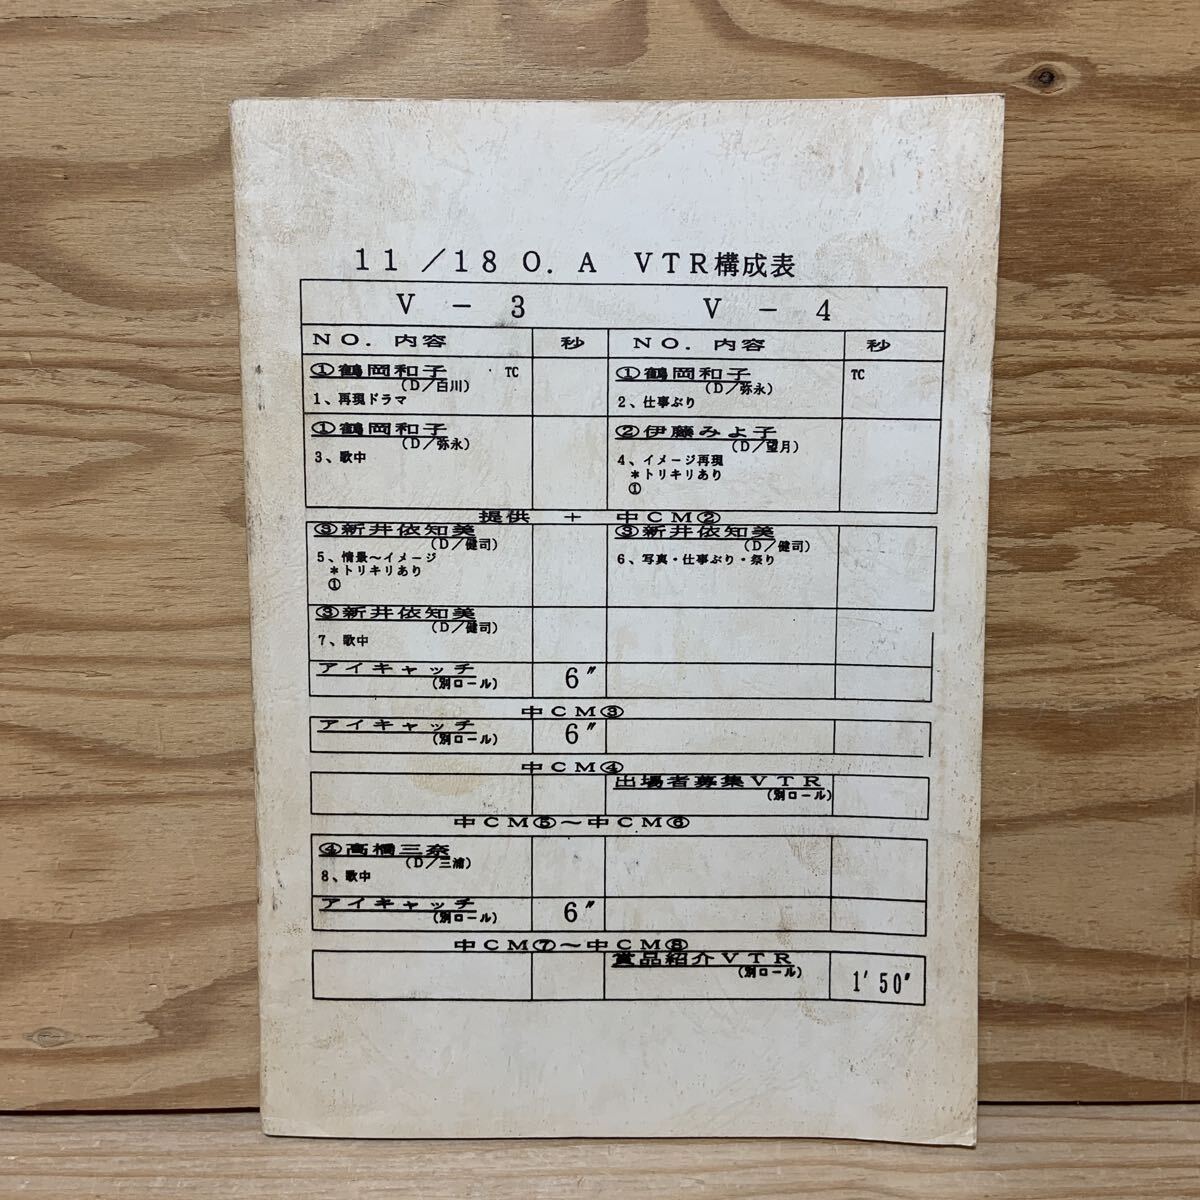 11／18 O．A　VTR構成表
V － 3　V － 4
NO．内容　秒　NO．内容　秒
①鶴岡和子　TC　①鶴岡和子　TC
（D／百川）　（D／弥永）
1、再現ドラマ　2、仕事ぶり
①鶴岡和子　②伊藤みよ子
（D／弥永）　（D／望月）
3、歌中　4、イメージ再現
＊トリキリあり
①
提供　＋　中CM②
③新井依知美　③新井依知美
（D／健司）　（D／健司）
5、情景～イメージ　6、写真・仕事ぶり・祭り
＊トリキリあり
①
③新井依知美
（D／健司）
7、歌中
アイキャッチ　6″
（別ロール）
中CM③
アイキャッチ　6″
（別ロール）
中CM④
出場者募集VTR
（別ロール）
中CM⑤～中CM⑥
④高橋三奈
（D／三浦）
8、歌中
アイキャッチ　6″
（別ロール）
中CM⑦～中CM⑧
賞品紹介VTR
（別ロール）　1′50″